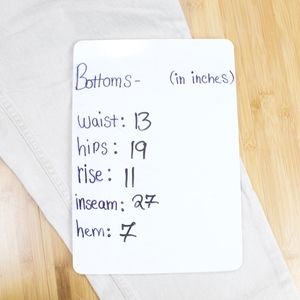 Bottoms- (in inches)
waist: 13
hips: 19
rise: 11
inseam: 27
hem: 7